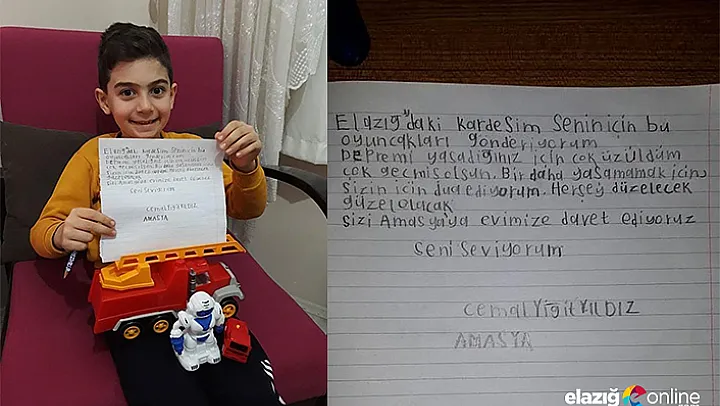 Elazığ'daki kardeşim senin için bu
oyuncakları gönderiyorum
DEPremi yaşadığınız için çok üzüldüm
çok geçmiş olsun. Bir daha yaşamamak için,
sizin için dua ediyorum. Herşey düzelecek
güzel olacak
sizi Amasya'ya evimize davet ediyoruz
seni seviyorum
cemal Yiğit YILDIZ
AMASYA
elazığ online